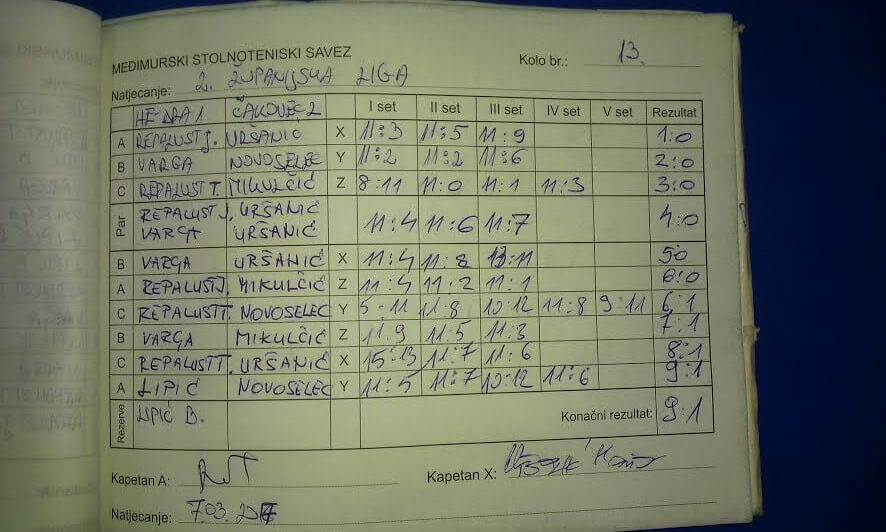 MEĐIMURSKI STOLNOTENISKI SAVEZ Kolo br.: 13.
Natjecanje: 2. ŽUPANIJSKA LIGA
HEDRA 1 ČAKOVEC 2 I set II set III set IV set V set Rezultat
A REPALUST J. URŠANIĆ X 11:3 11:5 11:9 1:0
B VARGA NOVOSELEC Y 11:2 11:2 11:6 2:0
C REPALUST T. MIKULČIĆ Z 8:11 11:0 11:1 11:3 3:0
Par REPALUST J. URŠANIĆ 11:4 11:6 11:7 4:0
VARGA URŠANIĆ
B VARGA URŠANIĆ X 11:4 11:8 13:11 5:0
A REPALUST J. MIKULČIĆ Z 11:4 11:2 11:1 6:0
C REPALUST T. NOVOSELEC Y 5:11 11:8 10:12 11:8 9:11 6:1
B VARGA MIKULČIĆ Z 11:9 11:5 11:3 7:1
C REPALUST T. URŠANIĆ X 15:13 11:7 11:6 8:1
A LIPIĆ NOVOSELEC Y 11:5 11:7 10:12 11:6 9:1
Rezerve LIPIĆ B. Konačni rezultat: 9:1
Kapetan A: Kapetan X:
Natjecanje: 7.03.2017